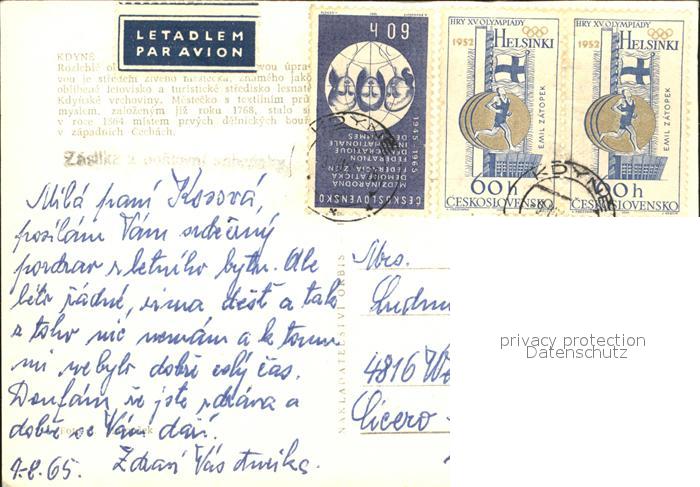 LETADLEM
PAR AVION
KDYNĚ
Rozlehlé
vou je středem živého městečka, známého jako
oblíbené letovisko a turistické středisko lesnaté
Kdyňské vrchoviny. Městečko s textilním prů-
myslem, založeným již roku 1768, stalo s
v roce 1864 místem prvých dělnických bouř
v západních Čechách.
Zásilka z poštovní schránky
60 h
1945-1965
MEZINÁRODNÍ
DEMOKRATICKÁ
FEDERACE ŽEN
FEDERATION
DEMOCRATIQUE
INTERNATIONALE
DES FEMMES
ČESKOSLOVENSKO
HRY XV OLYMPIADY
1952 HELSINKI
EMIL ZÁTOPEK
60 h
ČESKOSLOVENSKO
HRY XV OLYMPIADY
1952 HELSINKI
EMIL ZÁTOPEK
60 h
ČESKOSLOVENSKO
KDYNĚ
KDYNĚ
Milá paní Kosová,
posílám Vám srdečný
pozdrav z letního bytu. Ale
léto žádné, zima déšť a tak
z toho nic nemám a k tomu
mi nebylo dobře celý čas.
Doufám, že jste zdráva a
dobře se Vám daří.
1.8.65. Zdraví Vás
NAKLADATELSTVÍ ORBIS
Mrs.
Ludm
4816 W
Cicero
privacy protection
Datenschutz